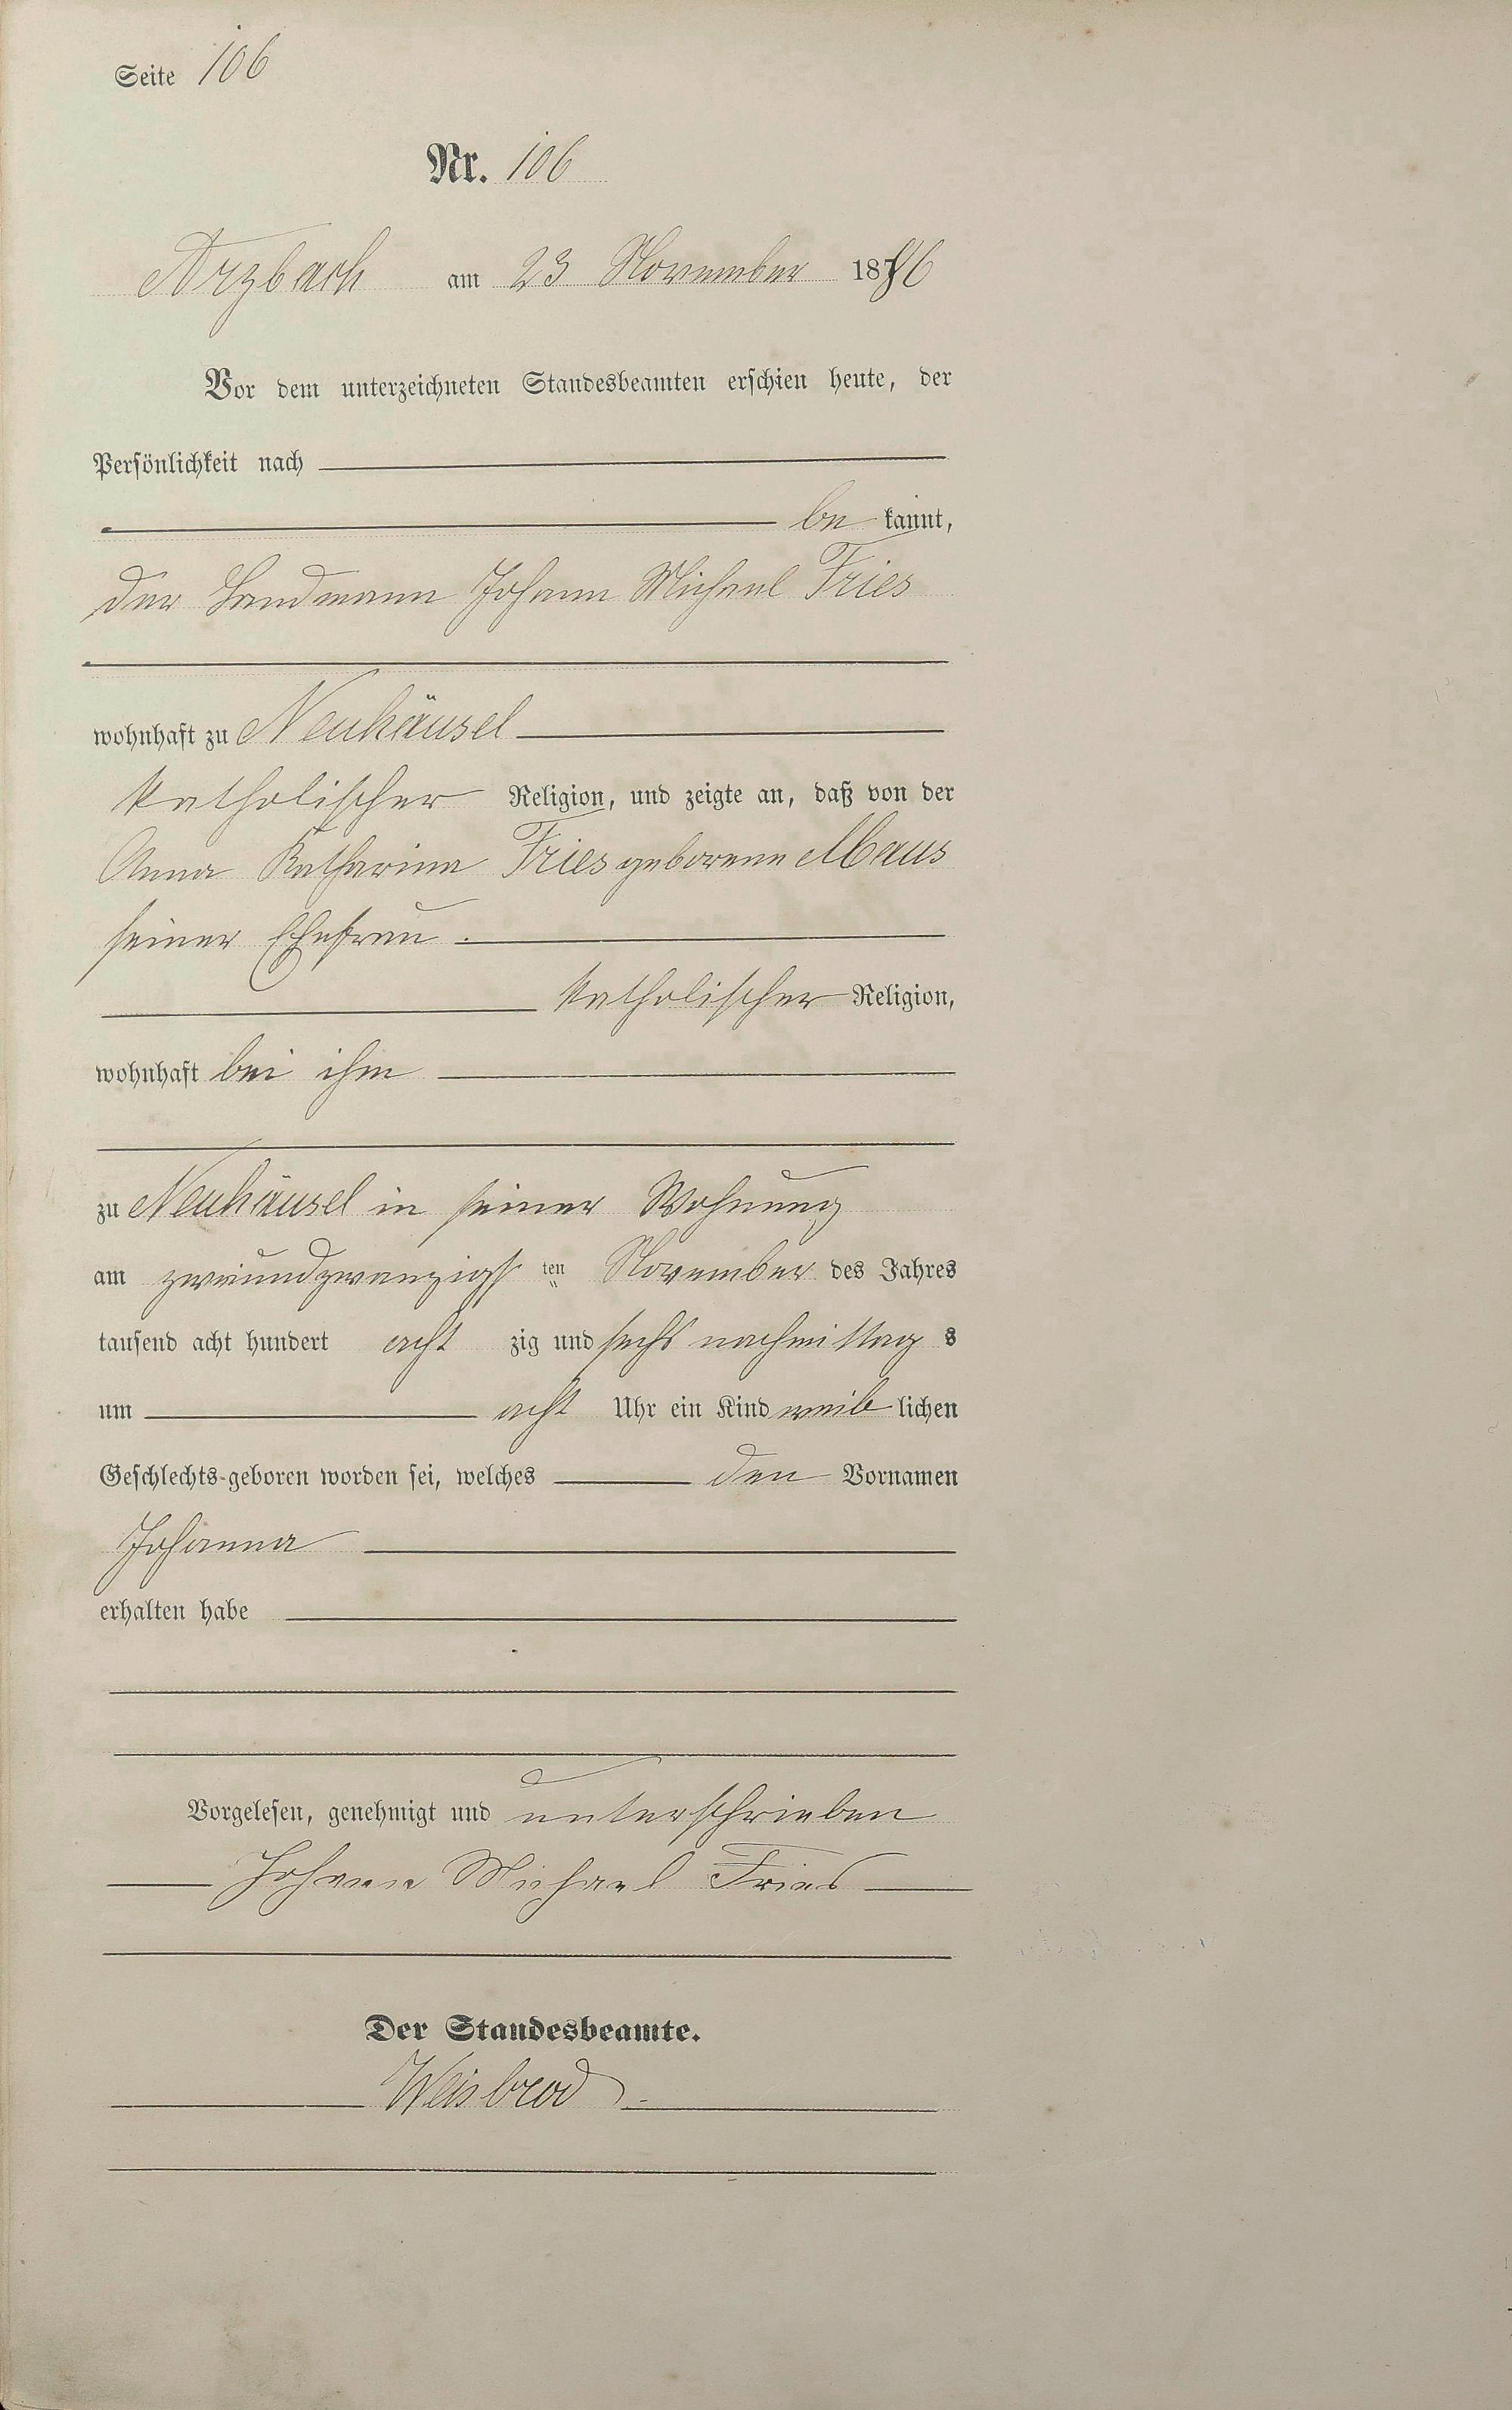 Seite 106
Nr. 106
Arzbach am 23 November 1886
Vor dem unterzeichneten Standesbeamten erschien heute, der
Persönlichkeit nach
be kannt,
der Landmann Johann Michael Fries
wohnhaft zu Neuhäusel
katholischer Religion, und zeigte an, daß von der
Anna Katharina Fries geborene Maus
seiner Ehefrau.
katholischer Religion,
wohnhaft bei ihm
zu Neuhäusel in seiner Wohnung
am zweiundzwanzigs ten November des Jahres
tausend acht hundert acht zig und sechs nachmittag s
um acht Uhr ein Kind weib lichen
Geschlechts geboren worden sei, welches den Vornamen
Johanna
erhalten habe
Vorgelesen, genehmigt und unterschrieben
Johann Michael Fries
Der Standesbeamte.
Weisbrod